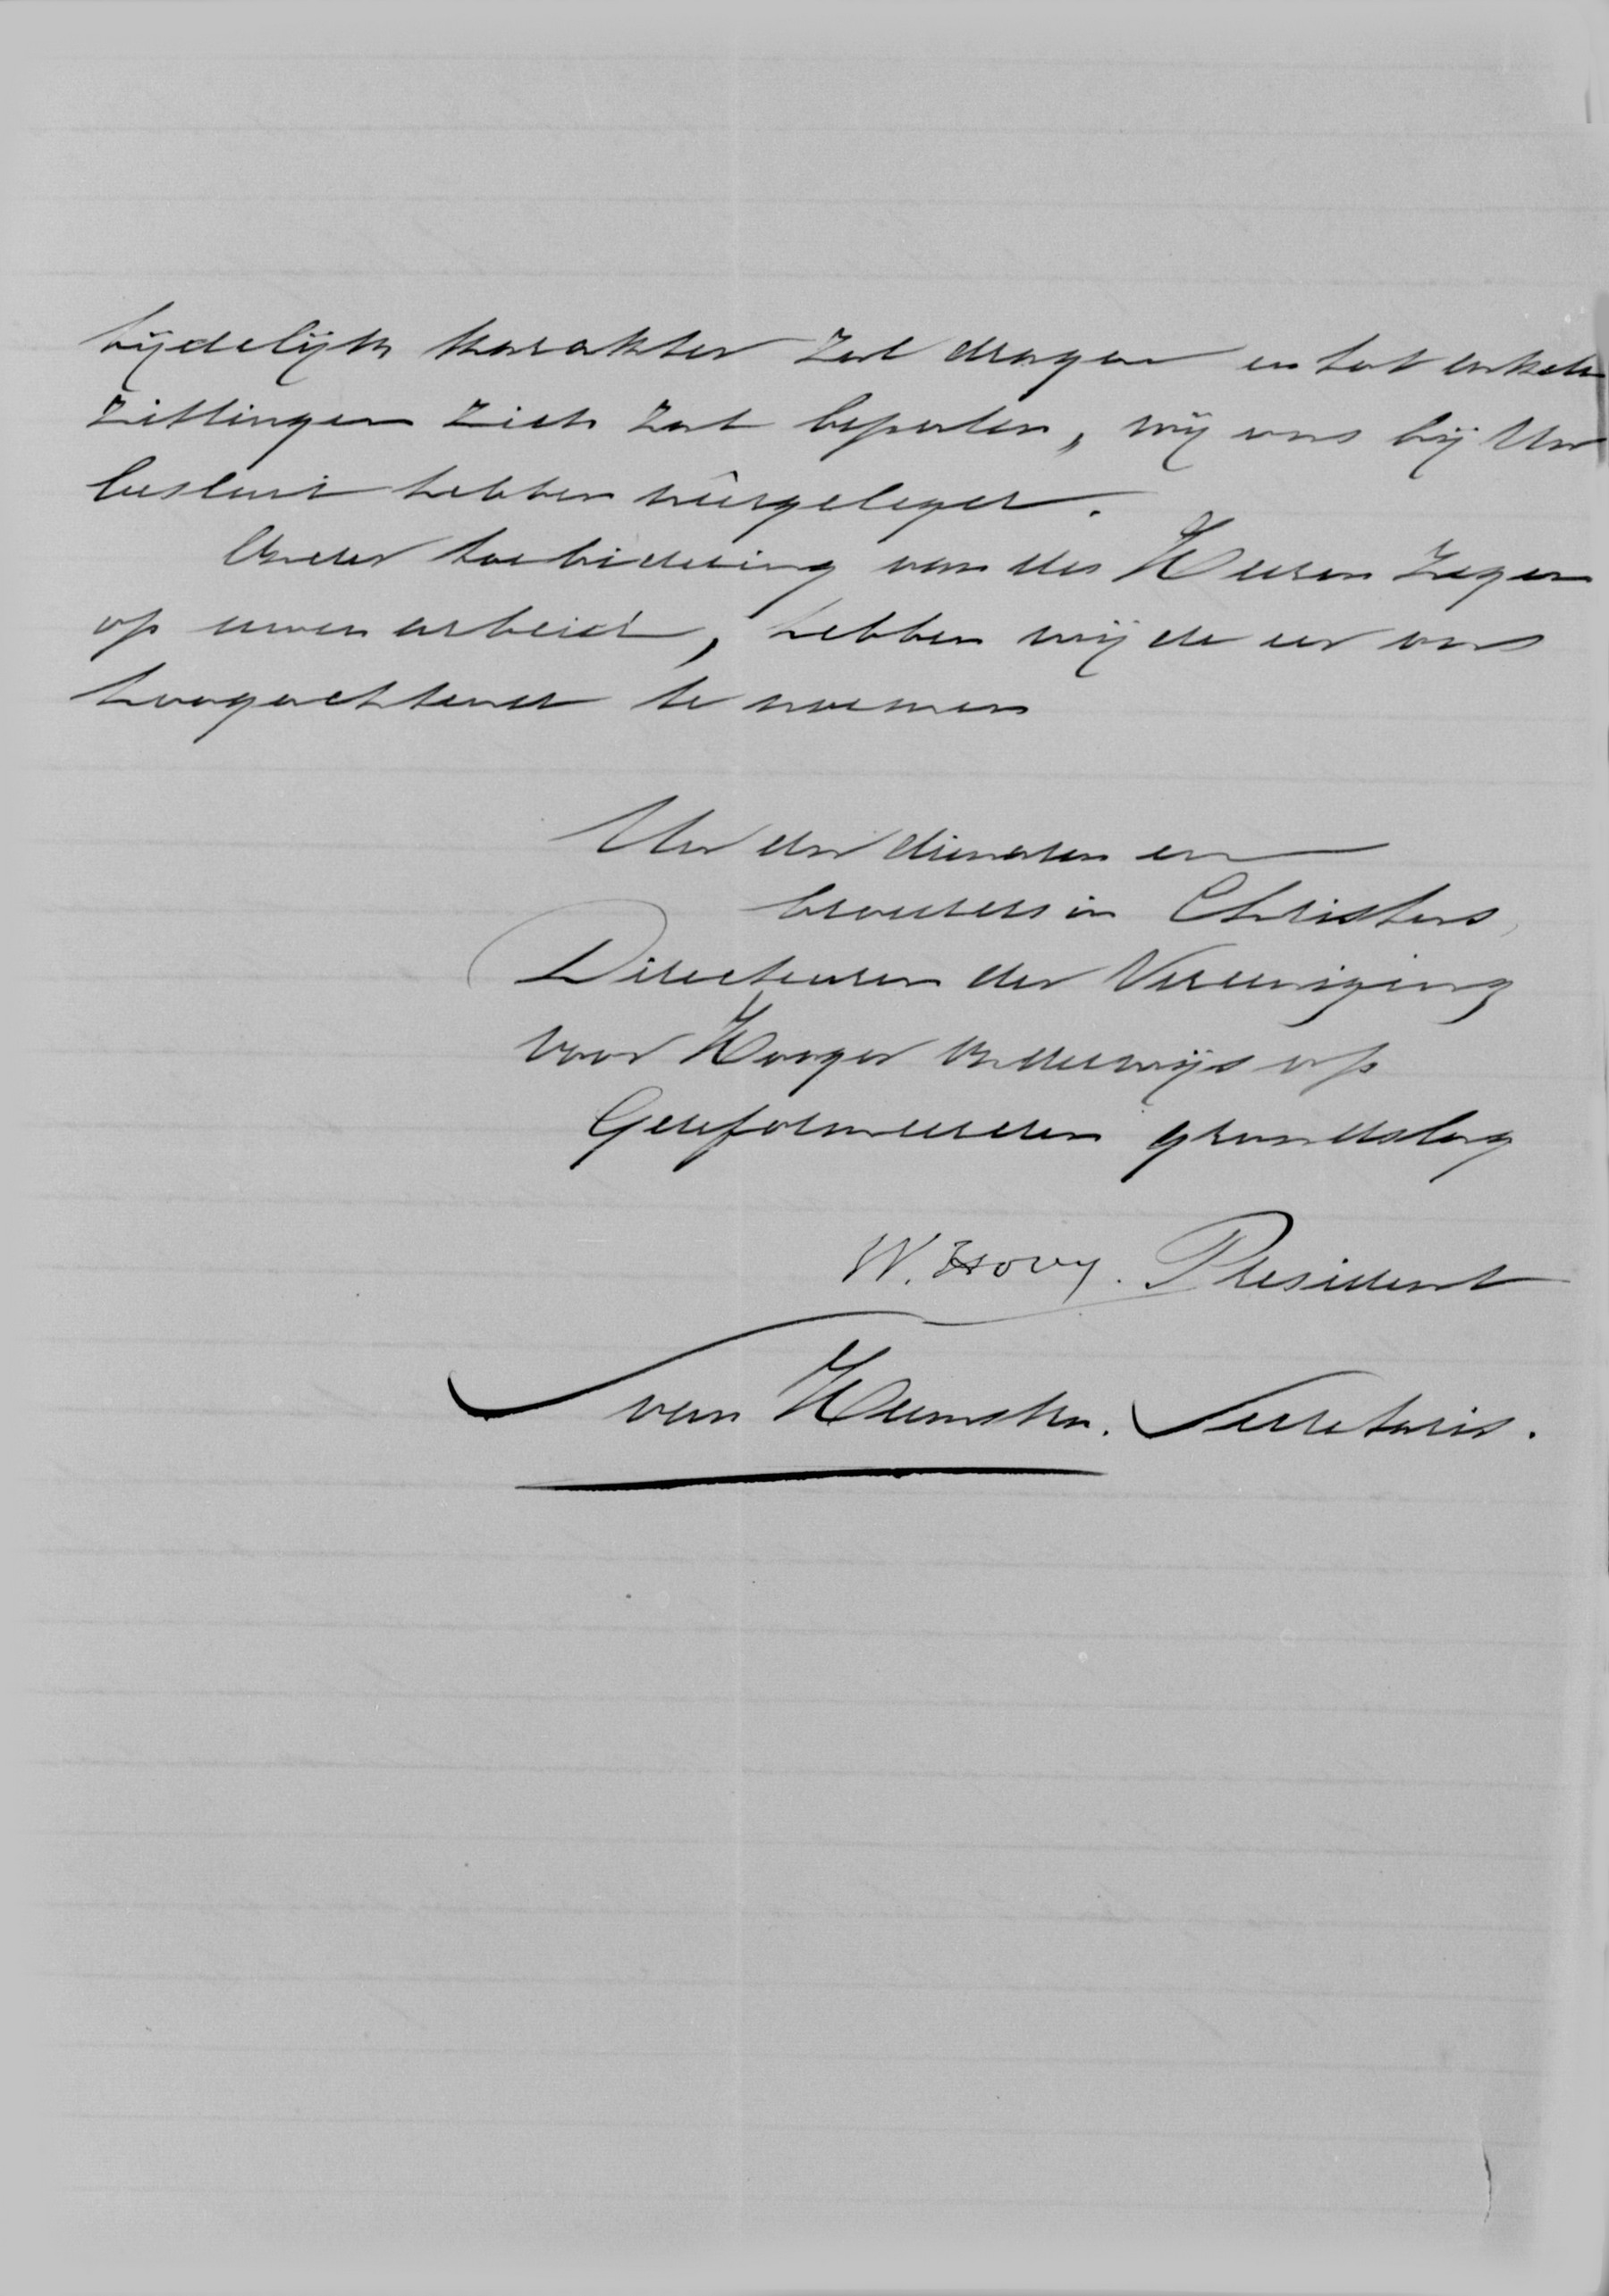 tijdelijk karakter zal dragen en tot enkele
zittingen zich zal bepalen, wij ons bij Uw
besluit hebben neêrgelegd.
Onder toebidding van des Heeren zegen
op uwen arbeid, hebben wij de eer ons
hoogachtend te noemen
Uw dw dienaren en
broeders in Christus,
Directeuren der Vereeniging
voor Hooger Onderwijs op
Gereformeerden grondslag
W. Hovy. President
van Heemstra. Secretaris.